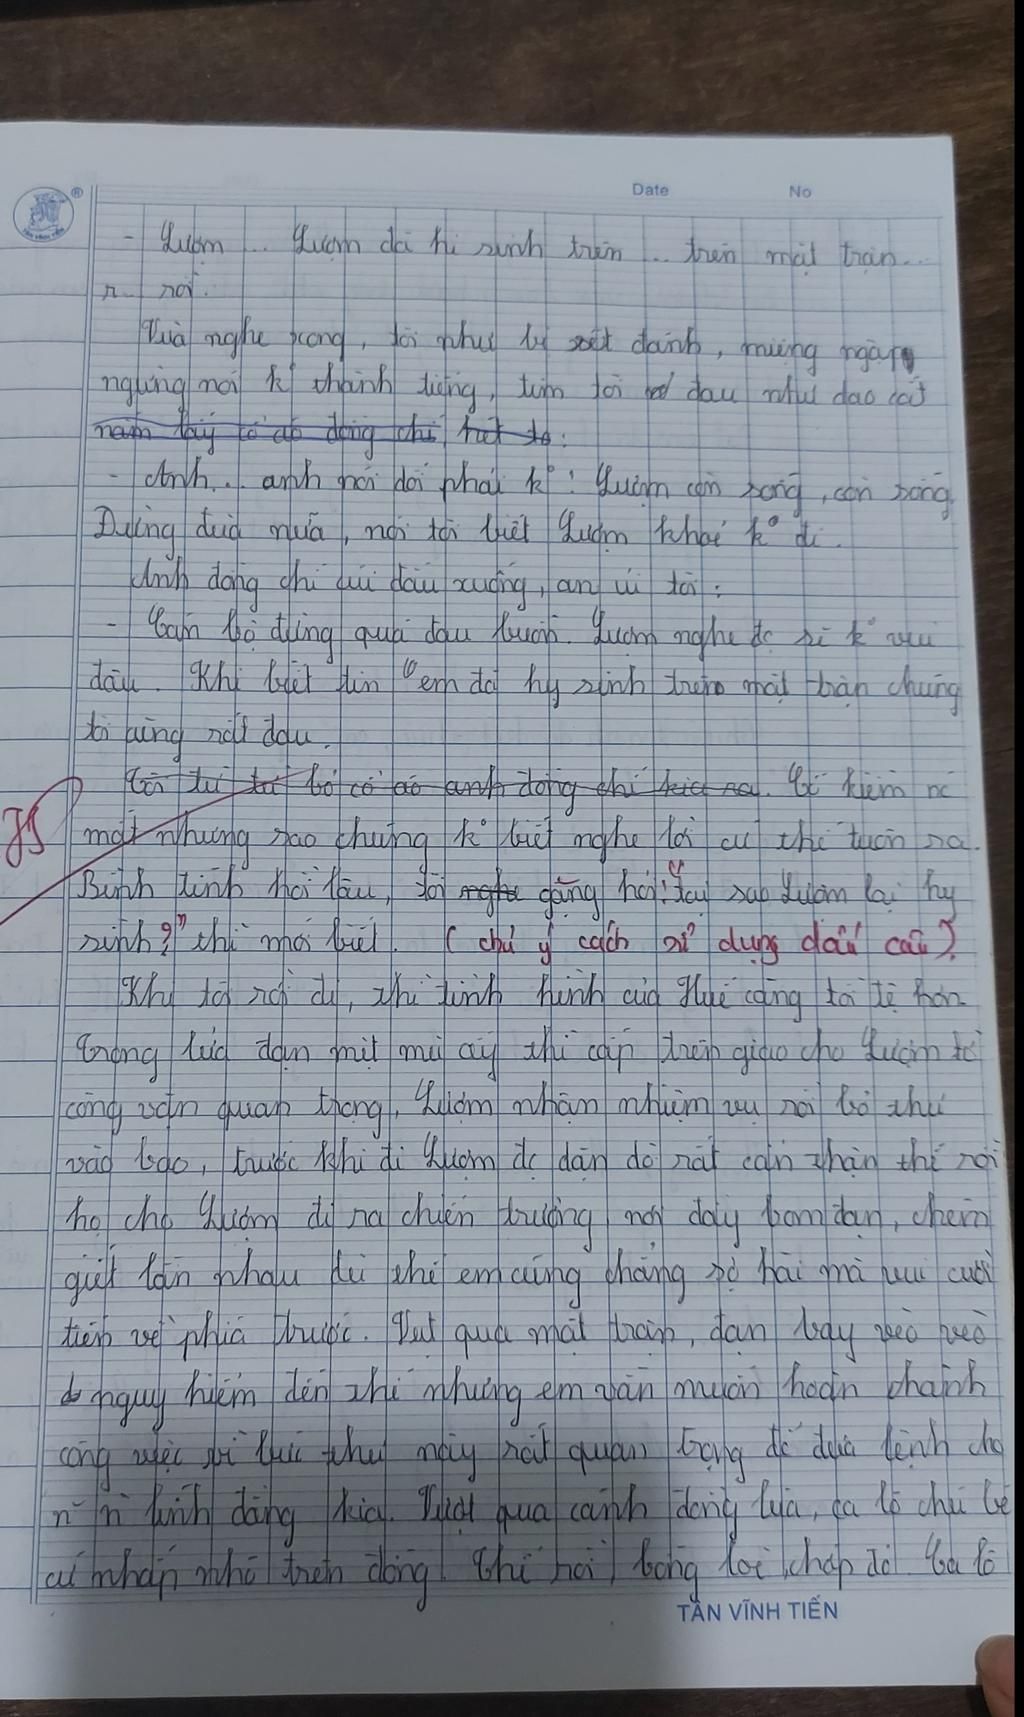 Date No
- Lượm... Lượm đã hi sinh trên... trên mặt trận...
r... rồi.
Vừa nghe xong, tôi như bị sét đánh, miệng ngập
ngừng nói k° thành tiếng, tim tôi đau như dao cắt
nắm lấy cổ áo đồng chí hét to:
- Anh... anh nói dối phải k°! Lượm còn sống, còn sống.
Đừng đùa nữa, nói tôi biết Lượm khỏe k° đi.
Anh đồng chí cúi đầu xuống, an ủi tôi:
- Cán bộ đừng quá đau buồn. Lượm nghe đc sẽ k° vui
đâu. Khi biết tin em đã hy sinh trên mặt trận chúng
tôi cũng rất đau.
Tôi từ từ bỏ cổ áo anh đồng chí kia ra. Cố kiềm nc
mắt nhưng sao chúng k° biết nghe lời cứ thế tuôn ra.
Bình tĩnh hồi lâu, tôi gặng hỏi: "Tại sao Lượm lại hy
sinh?" thì mới biết. (chú ý cách sử dụng dấu câu).
Khi tôi rời đi, thì tình hình của Huế càng tồi tệ hơn
Trong lúc đạn mịt mù ấy thì cấp trên giao cho Lượm tờ
công văn quan trọng, Lượm nhận nhiệm vụ rồi bỏ thư
vào bao, trước khi đi Lượm đc dặn dò rất cẩn thận thế rồi
họ cho Lượm đi ra chiến trường nơi đầy bom đạn, chém
giết lẫn nhau dù thế em cũng chẳng sợ hãi mà vui cười
tiến về phía trước. Vụt qua mặt trận, đạn bay vèo vèo
nguy hiểm đến thế nhưng em vẫn muốn hoàn thành
công việc vì bức thư này rất quan trọng để đưa lệnh cho
binh đằng kia. Vượt qua cánh đồng lúa, ca lô chú bé
cứ nhấp nhô trên đồng. Thế rồi, bỗng lòe chớp đỏ. Ca lô
TÂN VĨNH TIẾN